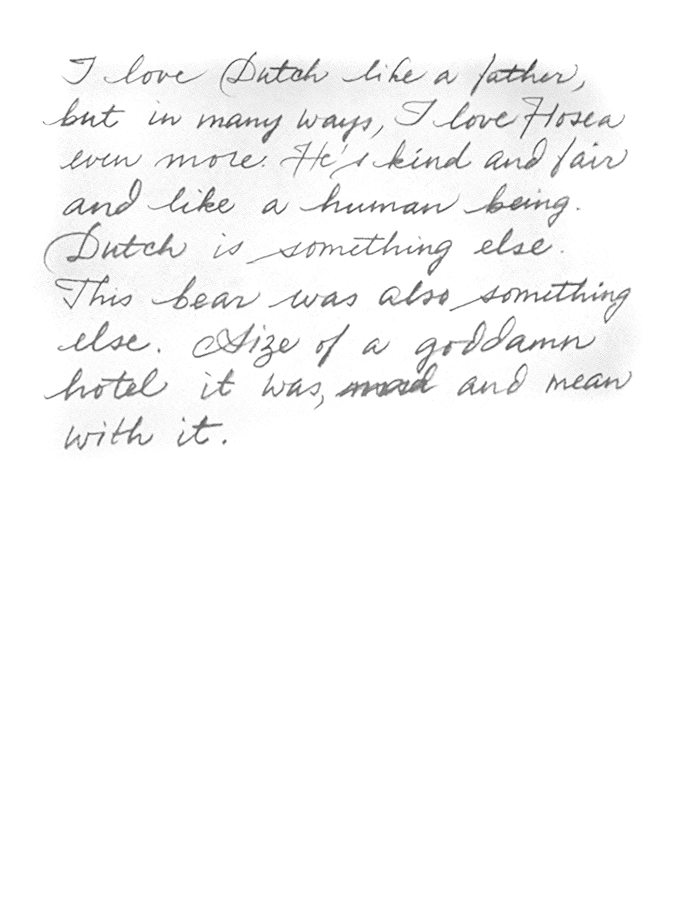 I love Dutch like a father,
but in many ways, I love Hosea
even more. He's kind and fair
and like a human being.
Dutch is something else.
This bear was also something
else. Size of a goddamn
hotel it was, and mean
with it.